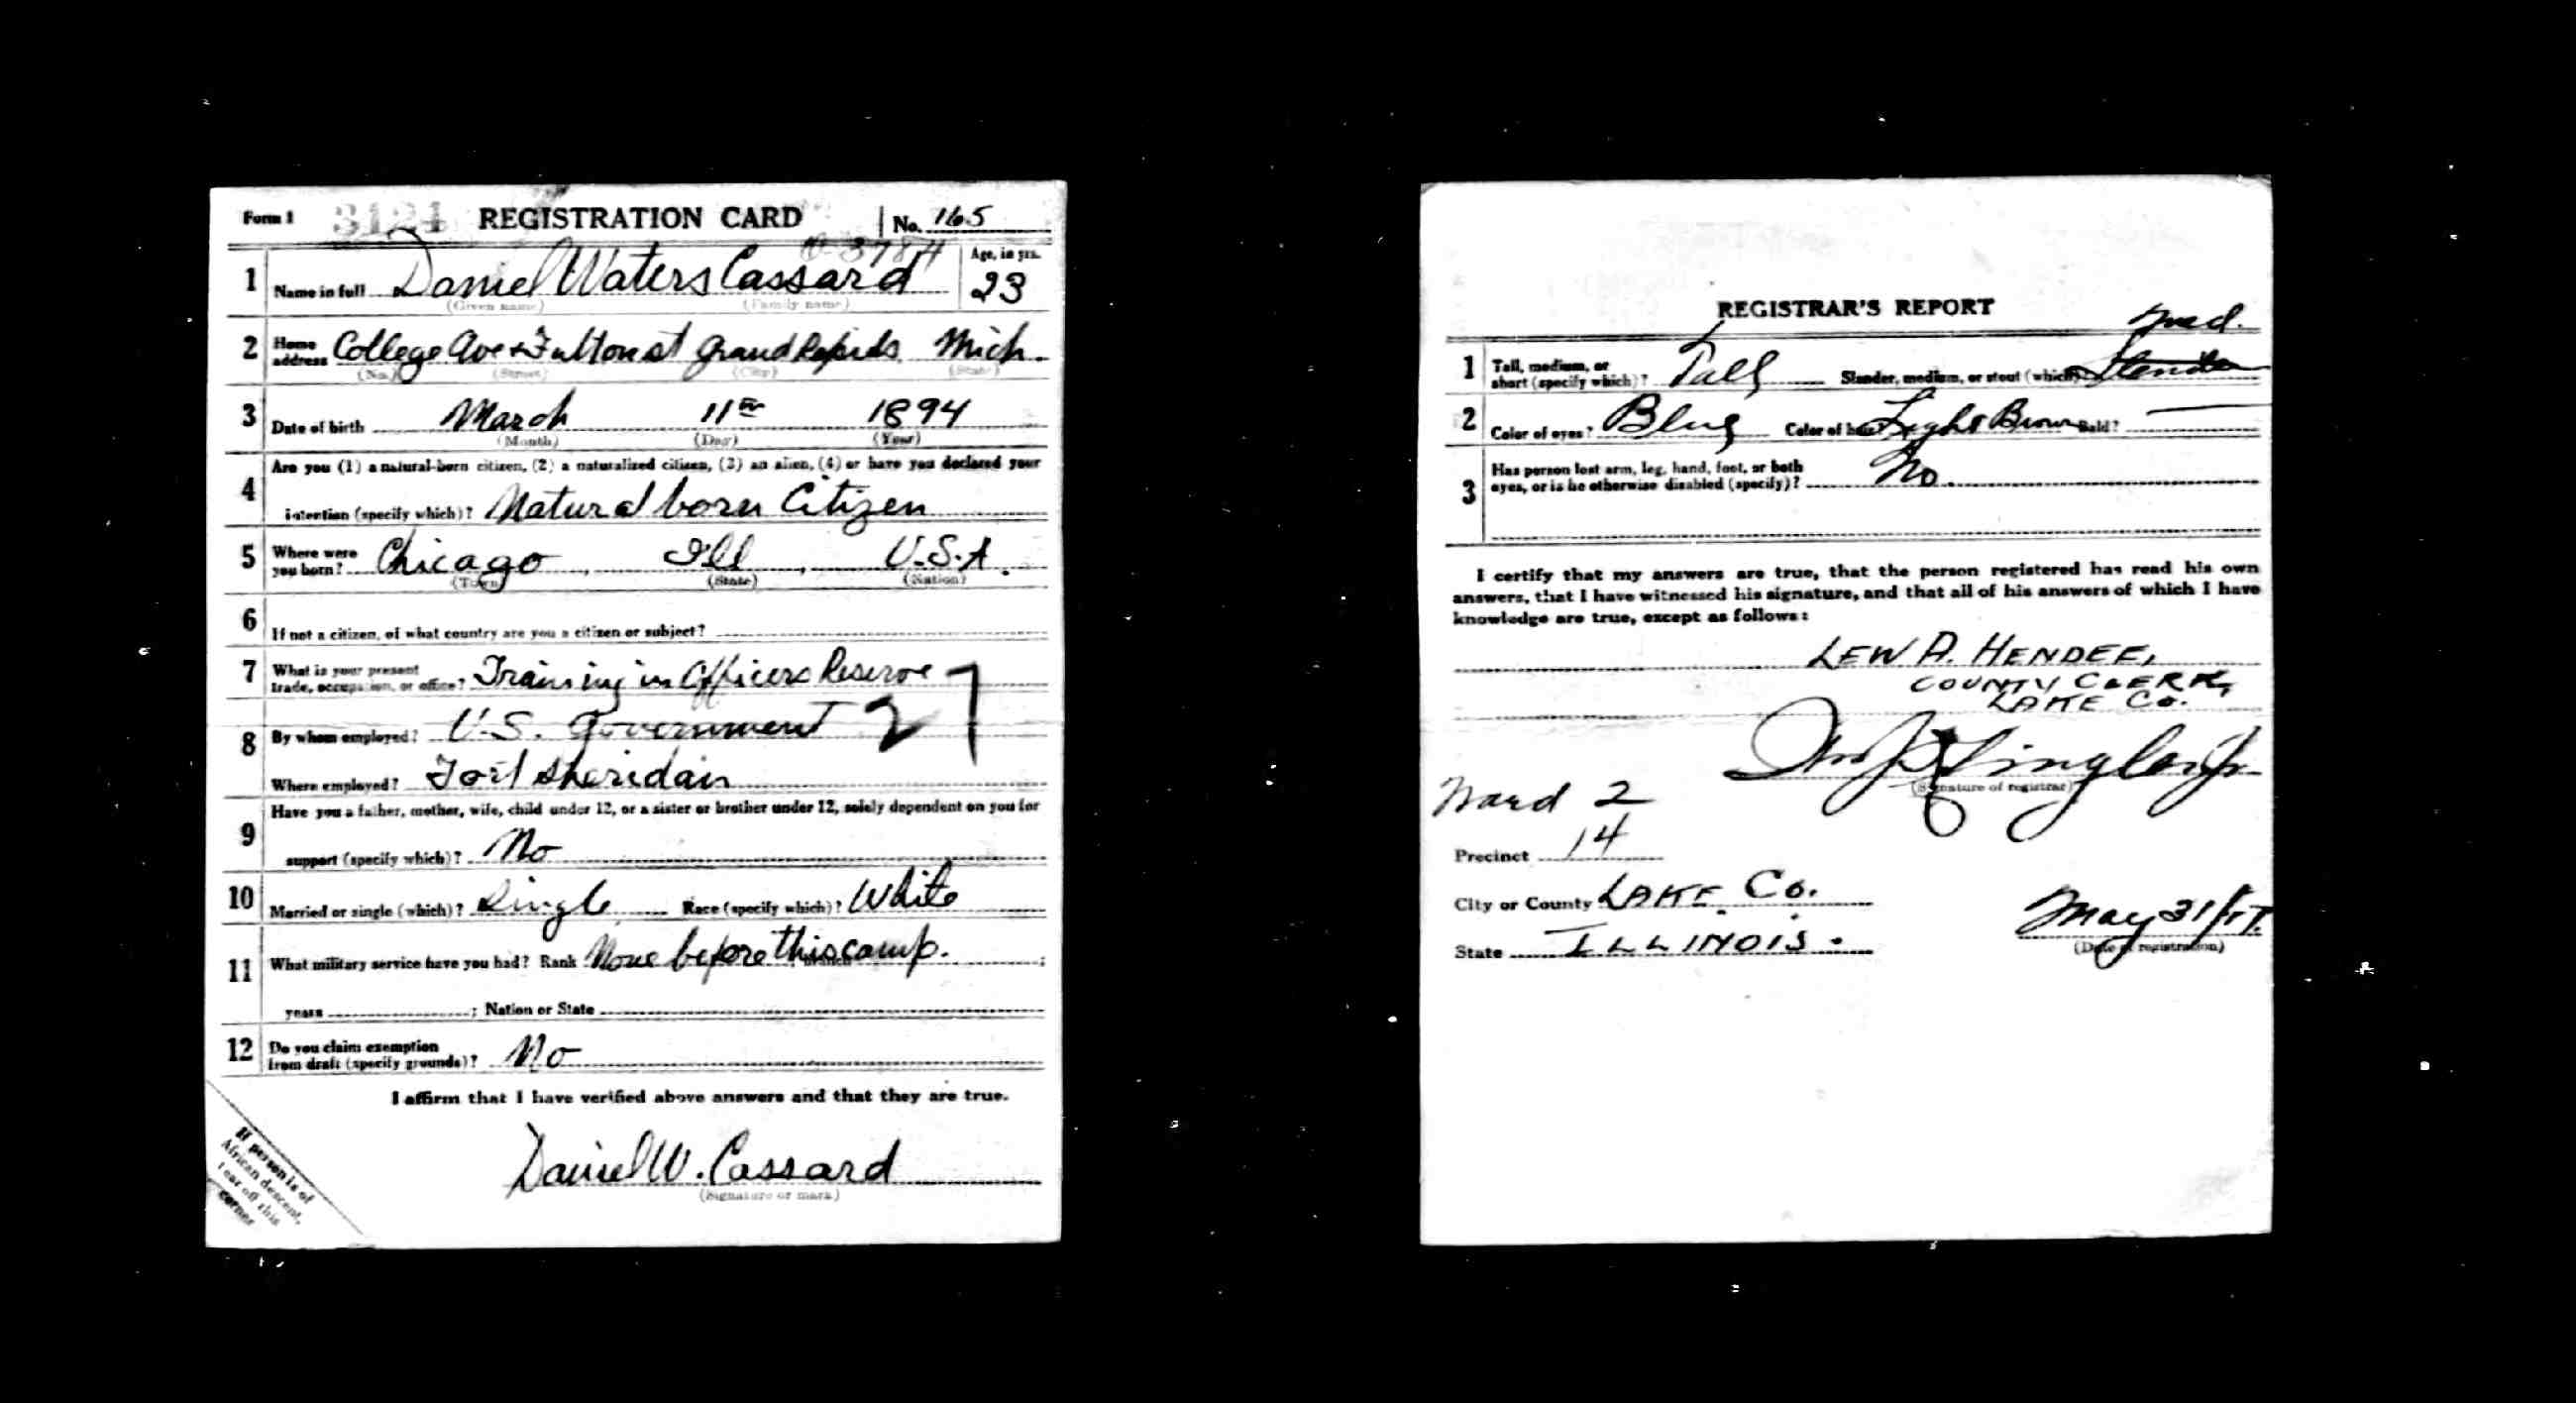 Form 1 3124 REGISTRATION CARD No. 165
1 Name in full Daniel Waters Cassard Age, in yrs. 23
(Given name) (Family name)
2 Home address College Ave & Fulton st Grand Rapids Mich.
(No.) (Street) (City) (State)
3 Date of birth March 11th 1894
(Month) (Day) (Year)
4 Are you (1) a natural-born citizen, (2) a naturalized citizen, (3) an alien, (4) or have you declared your
intention (specify which)? Natural born Citizen
5 Where were you born? Chicago Ill U.S.A.
(Town) (State) (Nation)
6 If not a citizen, of what country are you a citizen or subject?
7 What is your present trade, occupation, or office? Training in Officers Reserve
27
8 By whom employed? U.S. Government
Where employed? Fort Sheridan
9 Have you a father, mother, wife, child under 12, or a sister or brother under 12, solely dependent on you for
support (specify which)? No
10 Married or single (which)? Single Race (specify which)? White
11 What military service have you had? Rank None before this camp. branch ;
years ; Nation or State
12 Do you claim exemption from draft (specify grounds)? No
I affirm that I have verified above answers and that they are true.
Daniel W. Cassard
(Signature or mark)
If person is of
African descent,
tear off this
corner
REGISTRAR'S REPORT
Med.
1 Tall, medium, or short (specify which)? Tall Slender, medium, or stout (which)? Slender
2 Color of eyes? Blue Color of hair? Light Brown Bald?
3 Has person lost arm, leg, hand, foot, or both
eyes, or is he otherwise disabled (specify)? No
I certify that my answers are true, that the person registered has read his own
answers, that I have witnessed his signature, and that all of his answers of which I have
knowledge are true, except as follows:
LEW A. HENDEE,
COUNTY CLERK,
LAKE Co.
(Signature of registrar)
Ward 2
Precinct 14
City or County LAKE Co.
State ILLINOIS.
May 31/17.
(Date of registration)